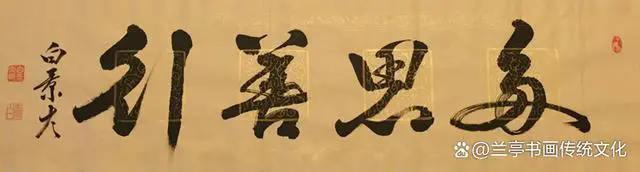 多思善行
白景
兰亭书画传统文化